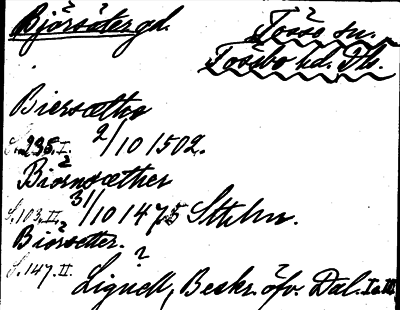 Björsäter gd.
Tösse sn.
Tössbo hd. Dls.
Biersætho
S. 235. I. 2/10 1502.
Biörnsæther
S. 103. II. 31/10 1475 Sthlm.
Biörsetter.
S. 147. II.
Lignell, Beskr. öfv. Dal. I o. II